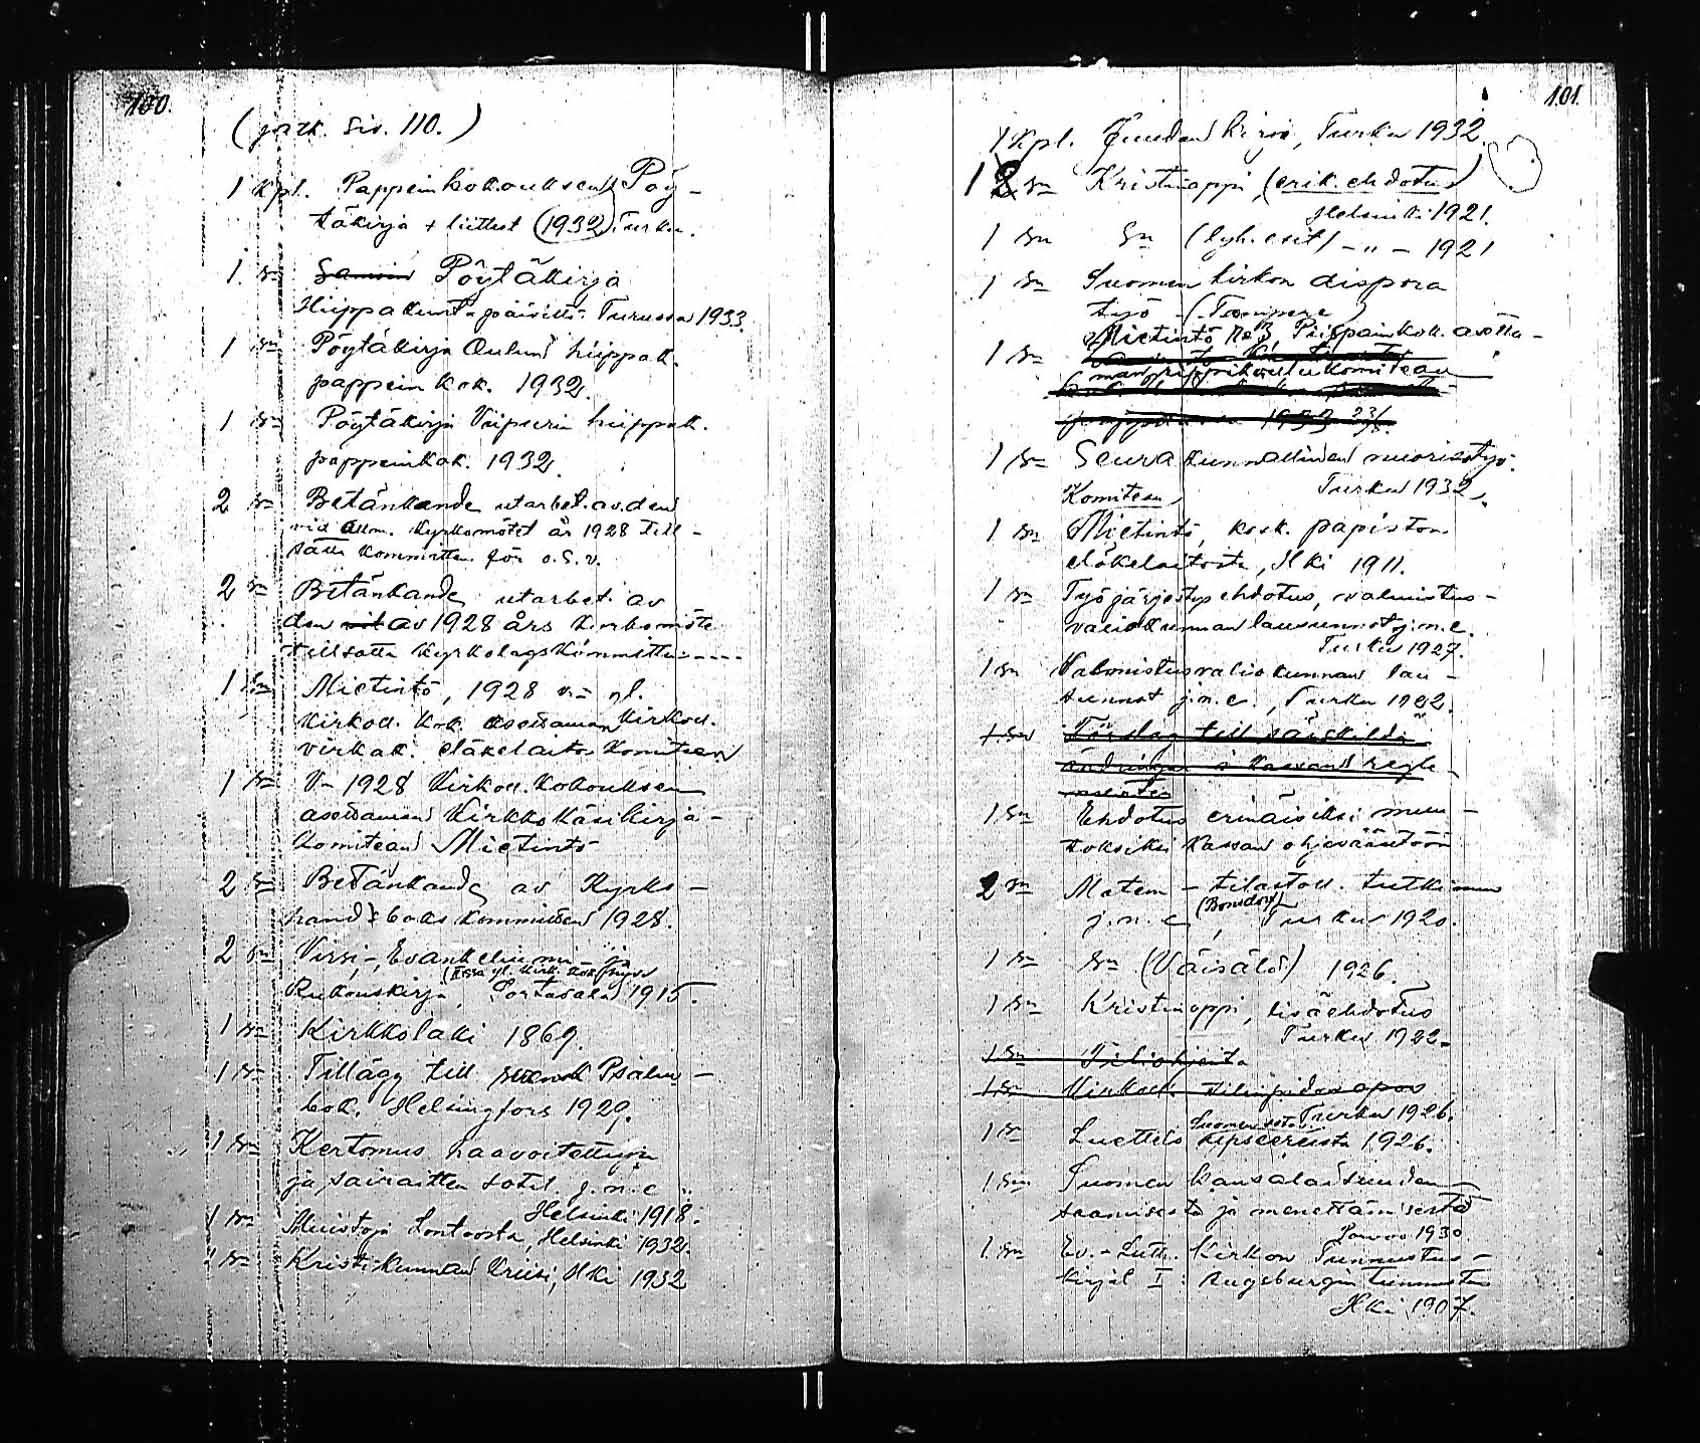 100.
(jatk. siv. 110.)
1 kpl. Pappeinkokouksen Pöy-
täkirja + liitteet (1932) Turku.
1 sn Samoin Pöytäkirja
Hiippakunta päiviltä Turussa 1933.
1 sn Pöytäkirja Oulun hiippak.
pappein kok. 1932.
1 sn Pöytäkirja Viipurin hiippak.
pappeinkok. 1932.
2 sn Betänkande utarbet. av den
vid allm. Kyrkomötet år 1928 till-
satta kommitten för o.s.v.
2 sn Betänkande utarbet. av
den av 1928 års kyrkomöte
tillsatta Kyrkolagskommitte----
1 sn Mietintö, 1928 v:n yl.
kirkoll. kok. asettaman kirkoll.
virkak. eläkelaitos komitean
1 sn V:n 1928 Kirkoll. Kokouksen
asettaman Kirkkokäsikirja-
komitean Mietintö
2 sn Betänkande av Kyrko-
handboks kommitten 1928.
2 sn Virsi-, Evankeliumi- ja
Rukouskirja, Sortavala 1915.
1 sn Kirkkolaki 1869.
1 sn Tillägg till svensk Psalm-
bok. Helsingfors 1929.
1 sn Kertomus haavoitettujen
ja sairaitten sotil. j.n.e
Helsinki 1918.
1 sn Muistoja Lontoosta, Helsinki 1932.
1 sn Kristikunnan kriisi, Hki 1932
101.
1 kpl. Juudan kirja, Turku 1932.
1 2 sn Kristinoppi, (erik. ehdotus)
Helsinki 1921.
1 sn sn (lyh. esit) -"- 1921
1 sn Suomen kirkon diaspora
työ - (Tampere)
Mietintö No 3, Piispainkok. asetta-
1 sn
man rippikoulukomitean
1933 23/
1 sn Seurakunnallinen nuorisotyö.
Komitean Turku 1932.
1 sn Mietintö, kosk. papiston
eläkelaitosta, Hki 1911.
1 sn Työjärjestys ehdotus, valmistus-
valiokunnan lausunnot j.n.e.
Turku 1927.
1 sn Valmistusvaliokunnan lau-
sunnot j.n.e., Turku 1922.
1 sn Förslag till särskilda
ändringar i kassans regle-
mente
1 sn Ehdotus erinäisiksi muu-
toksiksi kassan ohjesääntöön
2 sn Matem - tilastoll. tutkimus
j.n.e (Bonsdorff), Turku 1920.
1 sn sn (Väisälä) 1926.
1 sn Kristinoppi, lisäehdotus
Turku 1922.
1 sn Tiliohjeita
1 sn Kirkoll. tilinpidon opas
Turku 1926.
1 sn Luettelo Suomen sota upseereista 1926.
1 sn Suomen kansalaisuuden
saamisesta ja menettämisestä
Porvoo 1930
1 sn Ev.-Luth. kirkon Tunnustus-
kirjat I: Augsburgin tunnustus
Hki 1907.